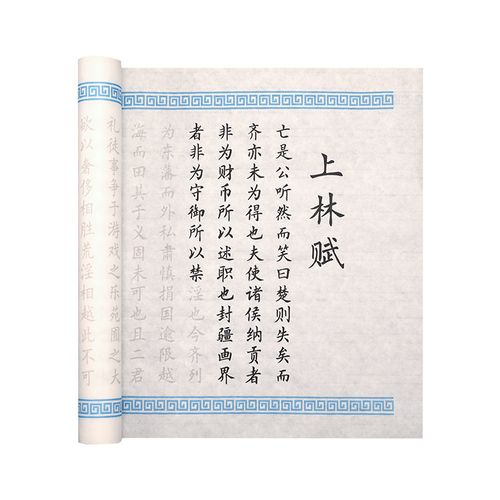 上林赋
亡是公听然而笑曰楚则失矣而
齐亦未为得也夫使诸侯纳贡者
非为财币所以述职也封疆画界
者非为守御所以禁淫也今齐列
为东藩而外私肃慎捐国逾限越
海而田其于义固未可也且二君
礼徒事争于游戏之乐苑囿之大
欲以奢侈相胜荒淫相越此不可